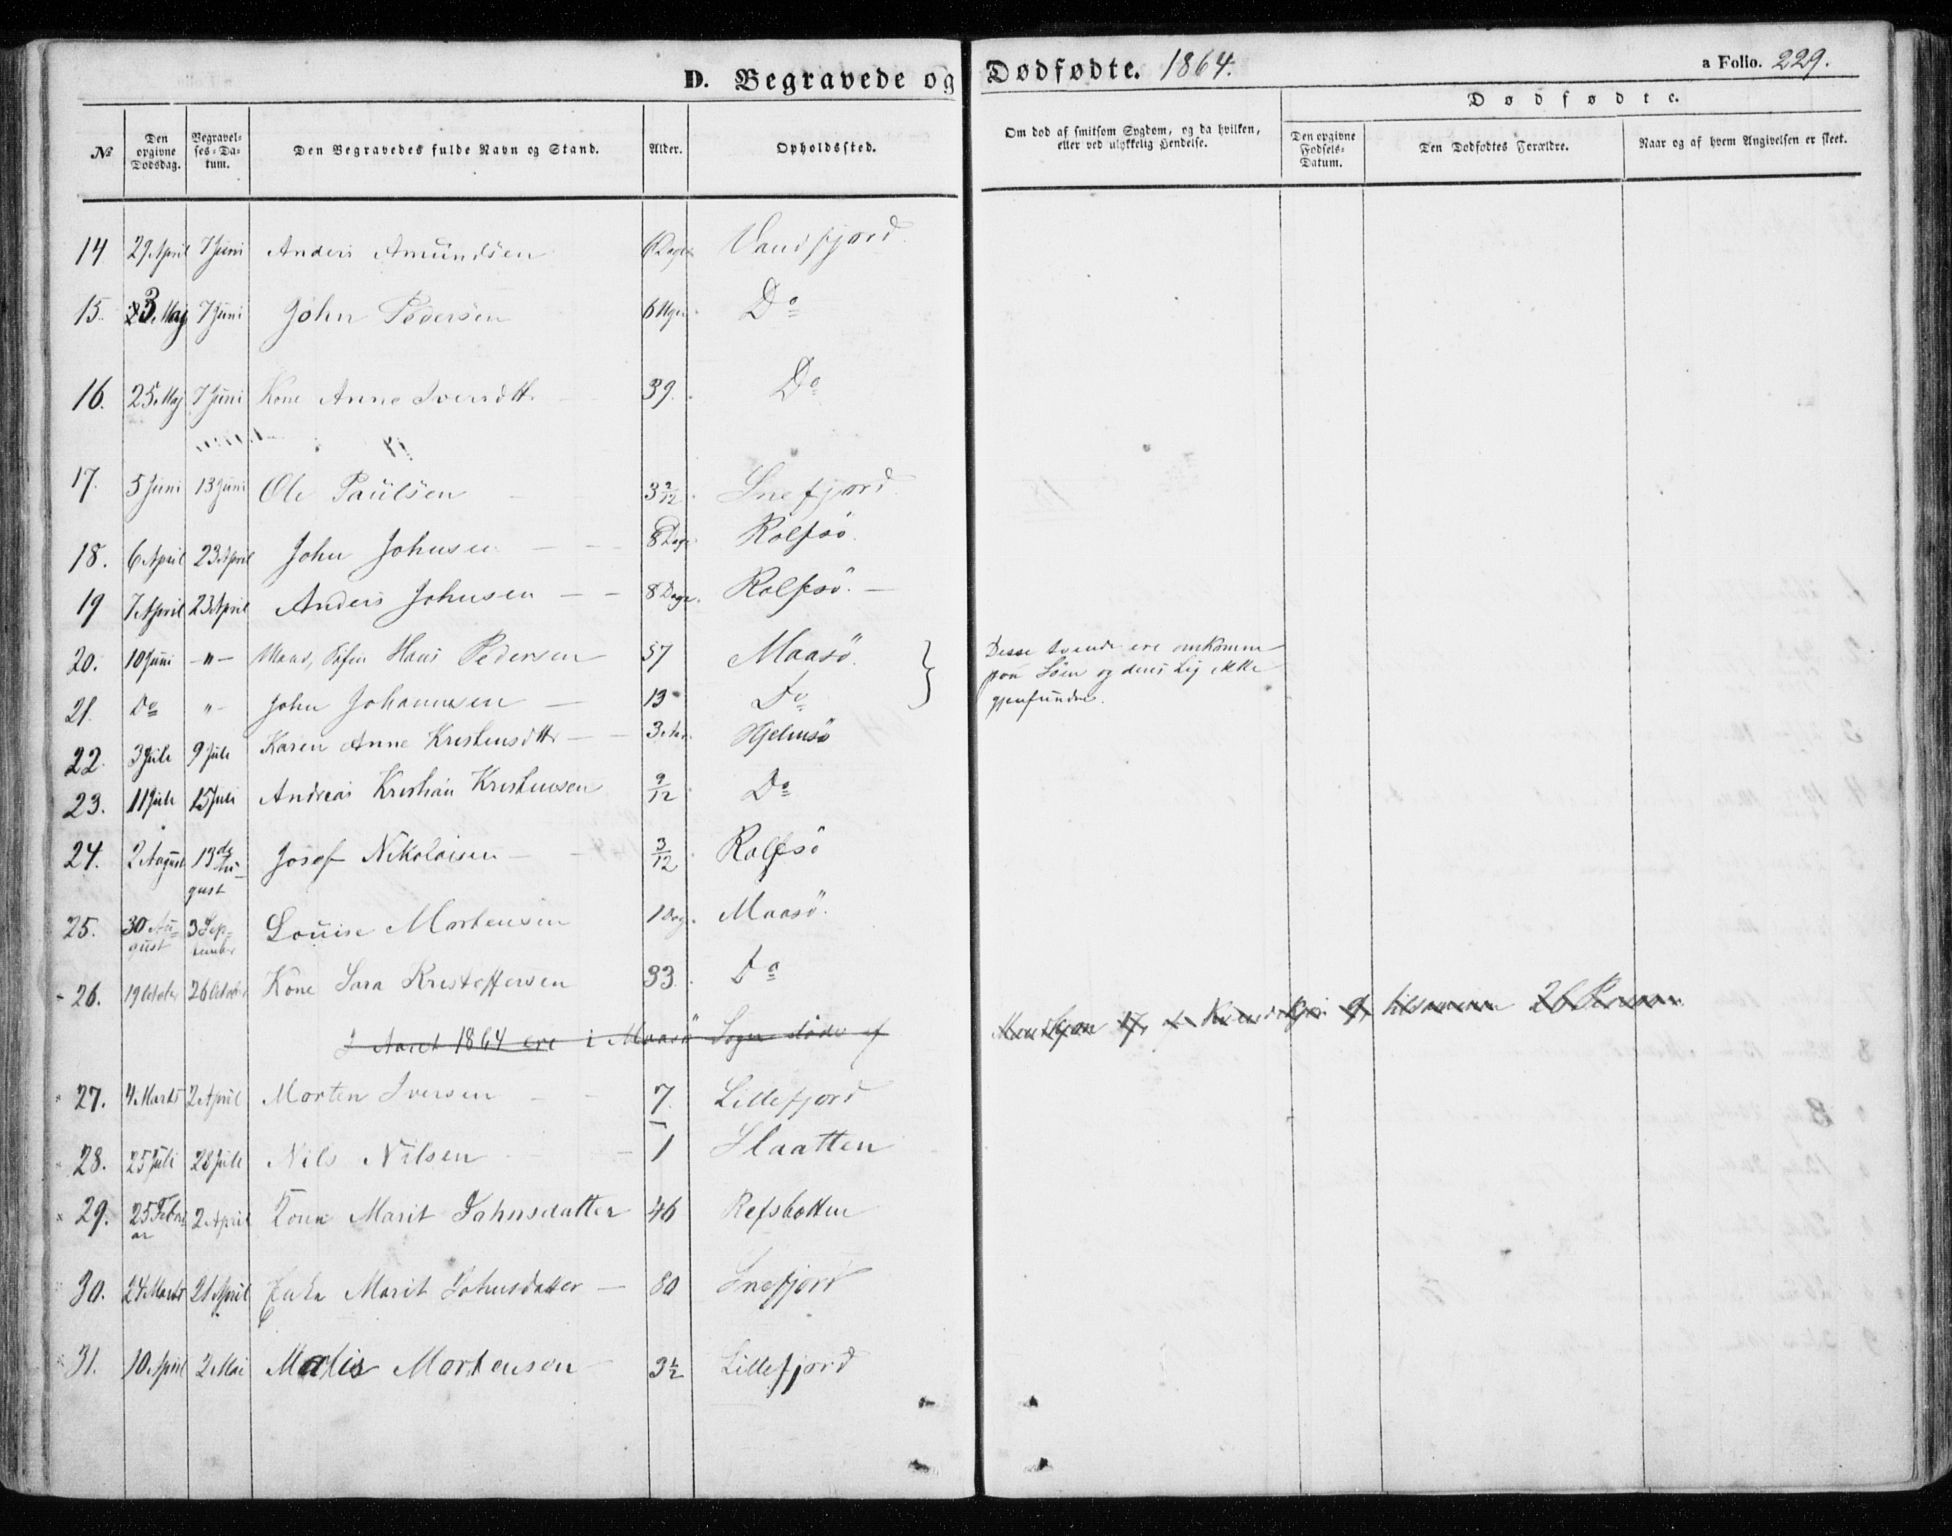 D. Begravede og Dødfødte. 1864.
a Folio. 229.
No
Den opgivne Dødsdag.
Begravelses-Datum.
Den Begravedes fulde Navn og Stand.
Alder.
Opholdssted.
Om død af smitsom Sygdom, og da hvilken, eller ved ulykkelig Hendelse.
Dødfødte.
Den opgivne Fødsels-Datum.
Den Dødfødtes Forældre.
Naar og af hvem Angivelsen er skeet.
14 29 April 7 Juni Anders Amundsen Dage
15. Maj 7 Juni John Pedersen 6 Uger Do
16. 25 Maj 7 Juni Kone Anne Iversdtr 39. Do
17. 5 Juni 13 Juni Ole Paulsen Snefjord
18. 6 April 23 April John Johnsen 8 Dage Rolfsö
19 7 April 23 April Anders Johnsen 8 Dage. Rolfsö.
20. 10 Juni -"- Hans Pedersen 57 Maasö. Disse tvende ere omkomne
paa Söen og deres Lig ikke
gjenfundne.
21. Do "- John Johannesen 13 Do
22. 3 Juli 9 Juli Karen Anne Kristensdtr 3 Hjelmsö
23. 11 Juli 15 Juli Andreas Kristian Kristensen 9/12 Do
24. 2 August 13de August Josef Nikolaisen 3/12 Rolfsö
25. 30 August 3 September Louise Mortensen 1 Dag. Maasö.
26. 19 October 26 October Kone Sara Kristoffersen 33. Do
I Aaret 1864 ere i Maasö Sogn döde af Mandkjøn 17, af Kvindekjøn 9, tilsammen 26 Personer
27. 4 Marts 2 April Morten Iversen 7. Lillefjord
28. 25 Juli 28 Juli Nils Nilsen 1 Slaatten
29. 25 Februar 2 April Kone Marit Johnsdatter 46 Refsbotten
30. 24 Marts 21 April Enke Marit Johnsdatter 80 Snefjord
31. 10 April 2 Mai Mortensen 3½ Lillefjord